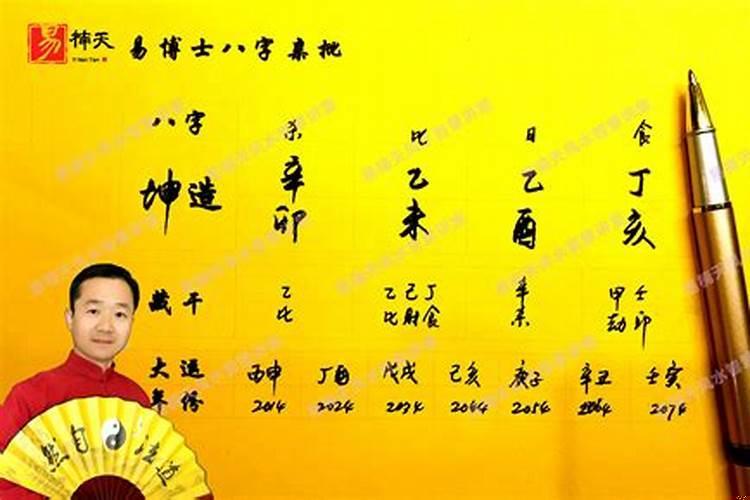 易 楠天 易博士八字集批
八字 杀 比 日 食
坤造 辛 乙 乙 丁
卯 未 酉 亥
藏干 乙 乙己丁 辛 甲壬
比 比财食 杀 劫印
大运 丙申 丁酉 戊戌 己亥 庚子 辛丑 壬寅
年份 2014 2024 2034 2044 2054 2064 2074
然自法道